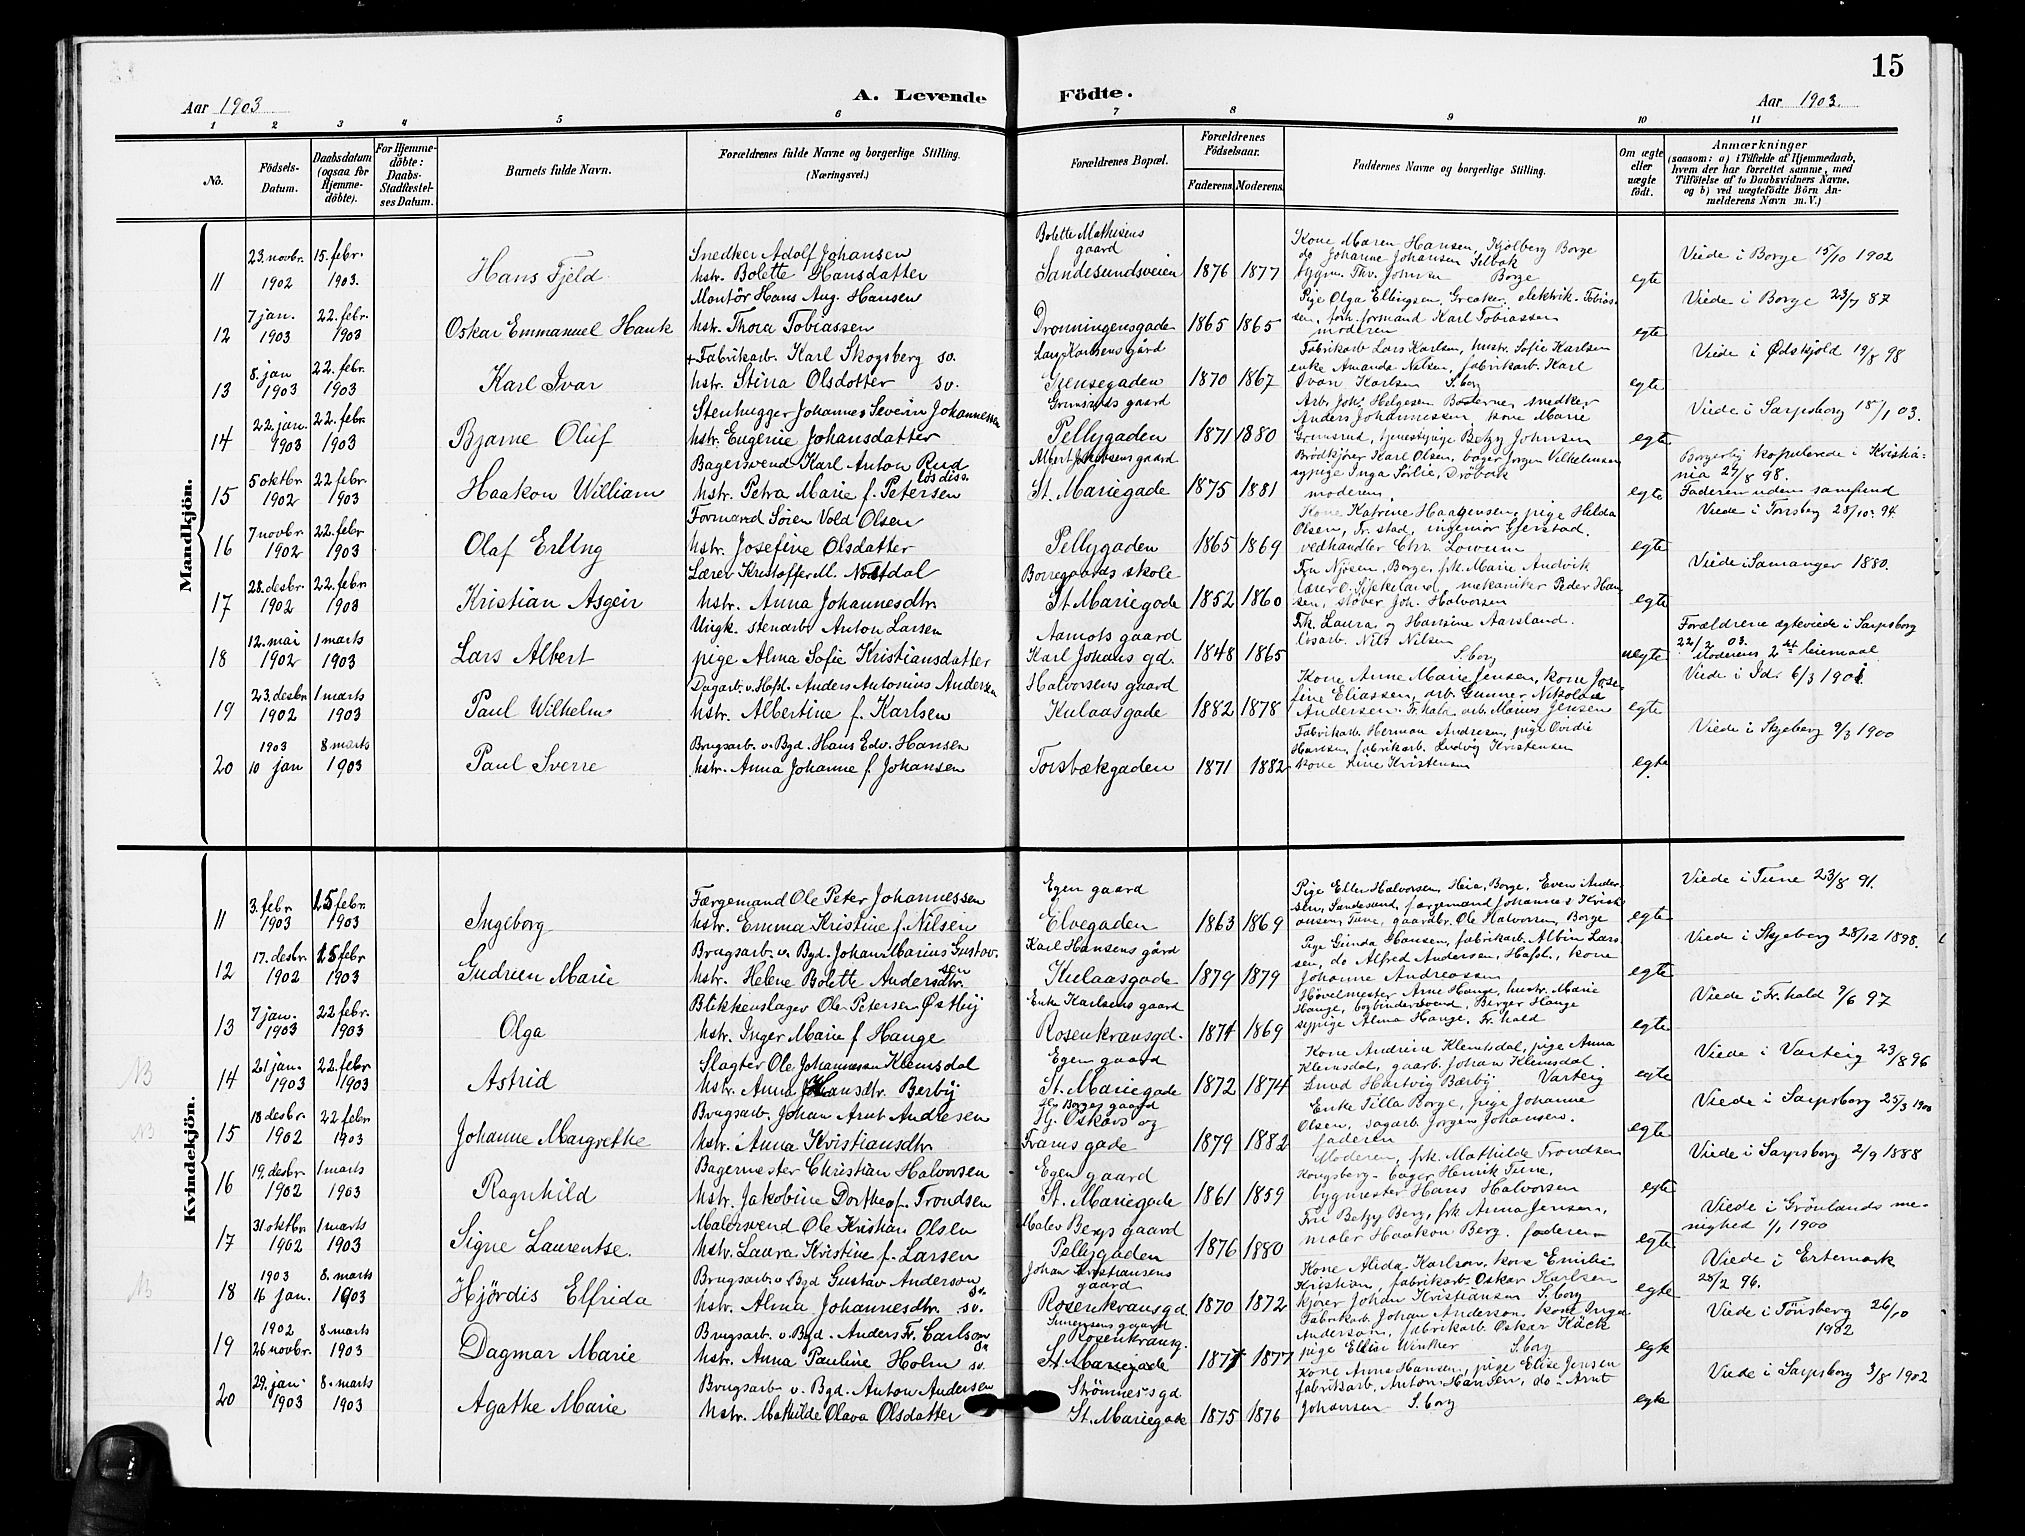 15
Aar 1903
A. Levende Födte.
Aar 1903.
1 2 3 4 5 6 7 8 9 10 11
No.
Födsels-Datum.
Daabsdatum (ogsaa for Hjemmedöbte).
For Hjemmedöbte: Daabs-Stadfæstelses Datum.
Barnets fulde Navn.
Forældrenes fulde Navne og borgerlige Stilling. (Næringsvei.)
Forældrenes Bopæl.
Forældrenes Födselsaar.
Faderens. Moderens.
Faddernes Navne og borgerlige Stilling.
Om ægte eller uægte födt.
Anmærkninger
(saasom: a) i Tilfælde af Hjemmedaab, hvem der har forrettet samme, med Tilföielse af to Daabsvidners Navne, og b) ved uægtefödte Börn Anmelderens Navn m. V.)
Mandkjön.
11 23. novbr. 1902 15. febr. 1903. Hans Fjeld
Snedker Adolf Johansen
hstr. Bolette Hansdatter
Bolette Mathisens gaard
Sandesundsveien 1876 1877
Kone Maren Hansen, Kjölberg Borge
do Johanne Johansen Selbak
bygm. Thv. Johnsen Borge
egte
Viede i Borge 15/10 1902
12 7 jan. 1903 22. febr. 1903 Oskar Emmanuel Hauk
Montör Hans Aug. Hansen
hstr. Thora Tobiassen
Dronningensgade 1865 1865
Pige Olga Ellingsen, Greaker, elektrik. Tobiassen, forh. formand Karl Tobiassen
moderen
egte
Viede i Borge 23/7 87
13 8. jan 1903 22. febr. 1903 Karl Ivar
+ Fabrikarb. Karl Skogsberg sv.
hstr. Stina Olsdotter sv.
Lars Karlsens gård
Grensegaden 1870 1867
Fabrikarb Lars Karlsen, hustr. Sofie Karlsen
enke Amanda Nilsen, fabrikarb. Karl
Ivan Karlsen S.borg
egte
Viede i Ødskjöld 19/8 98
14 22. jan. 1903 22. febr. 1903 Bjarne Oluf
Stenhugger Johannes Severin Johannessen
hstr. Eugenie Johansdatter
Grimsruds gaard
Pellygaden 1871 1880
Arb. Joh. Helgesen Baderne, snedker
Anders Johannessen kone Marie
Grimsrud, tjenestpige Betzy Johnsen
egte
Viede i Sarpsborg 18/1 03.
15 5 oktbr. 1902 22 febr. 1903 Haakon William
Bagersvend Karl Anton Rud lös diss.
hstr. Petra Marie f. Petersen
Albert Jakobsens gaard
St. Mariegade 1875 1881
Brödkjörer Karl Olsen, bager Jörgen Vilhelmsen
sypige Inga Sörlie, Dröbak
moderen.
egte
Borgerlig kopulerede i Kristiania 27/8 98.
Faderen uden samfund
16 7 novbr. 1902 22. febr. 1903 Olaf Erling
Formand Sören Vold Olsen
hstr. Josefine Olsdatter
Pellygaden 1865 1869
Kone Katrine Haagensen, pige Hilda
Olsen, Fr.stad, ingeniør Gjerstad.
vedhandler Chr. Lowum
egte
Viede i Tönsberg 28/10. 94.
17 28. desbr. 1902 22. febr 1903 Kristian Asgeir
Lærer Kristoffer M. Nøstdal
hstr. Anna Johannesdtr.
Borregaards skole
St. Mariegade 1852 1860
Fru Njösen, Borge, frk. Marie Andvik
lærer O. Sjekeland, mekaniker Peder Hansen, stöber Joh. Halvorsen
egte
Viede i Samanger 1880.
18 12. mai 1902 1 marts 1903 Lars Albert
Ungk. stenarb. Anton Larsen
pige Alma Sofie Kristiansdatter
Aamots gaard
Karl Johans gd. 1848 1865
Frk. Laura og Hartsine Aarsland.
lösarb. Nils Nilsen
S.borg
uegte
Forældrene egteviede i Sarpsborg 22/2 03.
Moderens 2det leiemaal
19 23 desbr. 1902 1 marts 1903 Paul Wilhelm.
Dagarb. v. Hafsl. Anders Antonius Andersen
hstr. Albertine f. Karlsen
Halvorsens gaard
Kulaasgade 1882 1878
Kone Anne Marie Jensen, kone Josefine Eliassen, arb. Gunner Nikolai
Andersen. Fr.hald arb. Marius Jensen
egte
Viede i Idr. 6/3 1901.
20 1903 10 jan 8 marts 1903 Paul Sverre
Brugsarb. v. Bgd. Hans Edv. Hansen
hstr. Anna Johanne f. Johansen
Torsbækgaden 1871 1882
Fabrikarb. Herman Andresen, pige Ovidie
Hansen, fabrikarb. Ludvig Kristensen
kone Line Kristensen
egte.
Viede i Skjeberg 9/3 1900
Kvindekjön.
11 3. febr 1903 15 febr. 1903 Ingeborg
Færgemand Ole Peter Johannessen
hstr. Emma Kristine f. Nilsen
Egen gaard
Elvegaden 1863 1869
Pige Ellen Halvorsen, Heia, Borge, Even Andersen, Sandesund, færgemand Johannes Kristiansen, Tune, gaardbr. Ole Halvorsen, Borge
egte
Viede i Tune 23/8 91.
12 17. desbr. 1902 15 febr 1903 Gudrun Marie
Brugsarb. v. Bgd. Johan Marius Gustavsen
hstr. Helene Bolette Andersdtr.
Karl Hansens gård
Kulaasgade 1879 1879
Pige Gunda Hansen, fabrikarb. Albin Larssen, do Alfred Andersen, Hafsl., kone
Johanne Andreassen
egte
Viede i Skjeberg 28/12 1898.
13 7 jan. 1903 22 febr. 1903 Olga
Blikkenslager Ole Petersen Østbij
hstr. Inger Marie f Hauge
Enke Karlsens gaard
Rosenkransgd. 1874 1869
Hövelmester Arne Hauge, hustr. Marie
Hauge, bogbindersvend, Birger Hauge
sypige Alma Hauge, Fr.hald
egte
Viede i Fr.hald 9/6 97
NB
14 21 jan. 1903 22. febr 1903 Astrid
Slagter Ole Johannessen Klemsdal
hstr. Anna Hansdtr. Berby
Egen gaard
St. Mariegade 1872 1874
Kone Andrine Klemsdal, pige Anna
Klemsdal, gaarb. Johan Klemsdal.
Smed Hartvig Bærby. Varteig
egte
Viede i Varteig 23/8 96
NB
15 18 desbr. 1902 22 febr. 1903 Johanne Margrethe
Brugsarb. Johan Arnt Andresen
hstr. Anna Kristiansdtr.
Hj. Borges gaard
Hj. Oskars og
Framsgade 1879 1882
Enke Tilla Borge, pige Johanne
Olsen, dagarb. Jörgen Johansen.
faderen
egte
Viede i Sarpsborg 25/3 1900
16 19. desbr. 1902 1 marts 1903 Ragnhild
Bagermester Christian Halvorsen
hstr. Jakobine Dorthea f. Trondsen
Egen gaard
St. Mariegade 1861 1859
Moderen, frk. Mathilde Trondsen
Kongsberg – bager Henrik Tune,
bygmester Hans Halvorsen
egte
Viede i Sarpsborg 2/9 1888
17 31 oktbr. 1902 1 marts 1903 Signe Laurentse.
Malersvend Ole Kristian Olsen
hstr. Laura Kristine f. Larsen
Maler Bergs gaard
Pellygaden 1876 1880
Fru Betzy Berg, frk Anna Jensen,
maler Haakon Berg. faderen
egte
Viede i Grönlands menighed 1/1 1900
NB
18 1903 16 jan. 8. marts 1903 Hjördis Elfrida
Brugsarb. v. Bgd Gustav Anderson sv.
hstr. Alma Johannesdtr. sv.
Johan Kristiansens gaard
Rosenkransgd 1870 1872
Kone Alida Karlson, kone Emilie
Kristian, fabrikarb. Oskar Karlsen
kjörer Johan Kristiansen S.borg
egte
Viede i Ertemark 28/2 96.
19 1902 26 novbr. 8 marts 1903 Dagmar Marie
Brugsarb. v. Bgd. Anders Fr. Carlson sv.
hstr. Anna Pauline Holm sv.
Rosenkransg.
St. Mariegade 1877 1877
Fabrikarb. Johan Anderson, kone Inga
Anderson, fabrikarb Oskar Käck
pige Ellise Winther S.borg
egte
Viede i Tönsberg 26/10 1902
20 29. jan. 1903 8. marts 1903 Agathe Marie
Brugsarb. v. Bgd. Anton Andersen
hstr. Mathilde Olava Olsdatter
Strömnes's gd
St. Mariegade 1875 1876
Kone Anne Hansen, pige Elise Jensen
fabrikarb. Anton Hansen, do – Arnt
Johansen S.borg
egte
Viede i Sarpsborg 3/8 1902